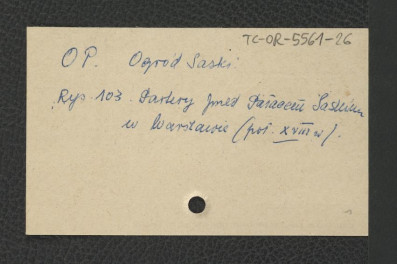 TC-OR-5561-26
OP. Ogród Saski.
Rys. 103. Partery przed Pałacem Saskim
w Warszawie (poł. XVIII w).